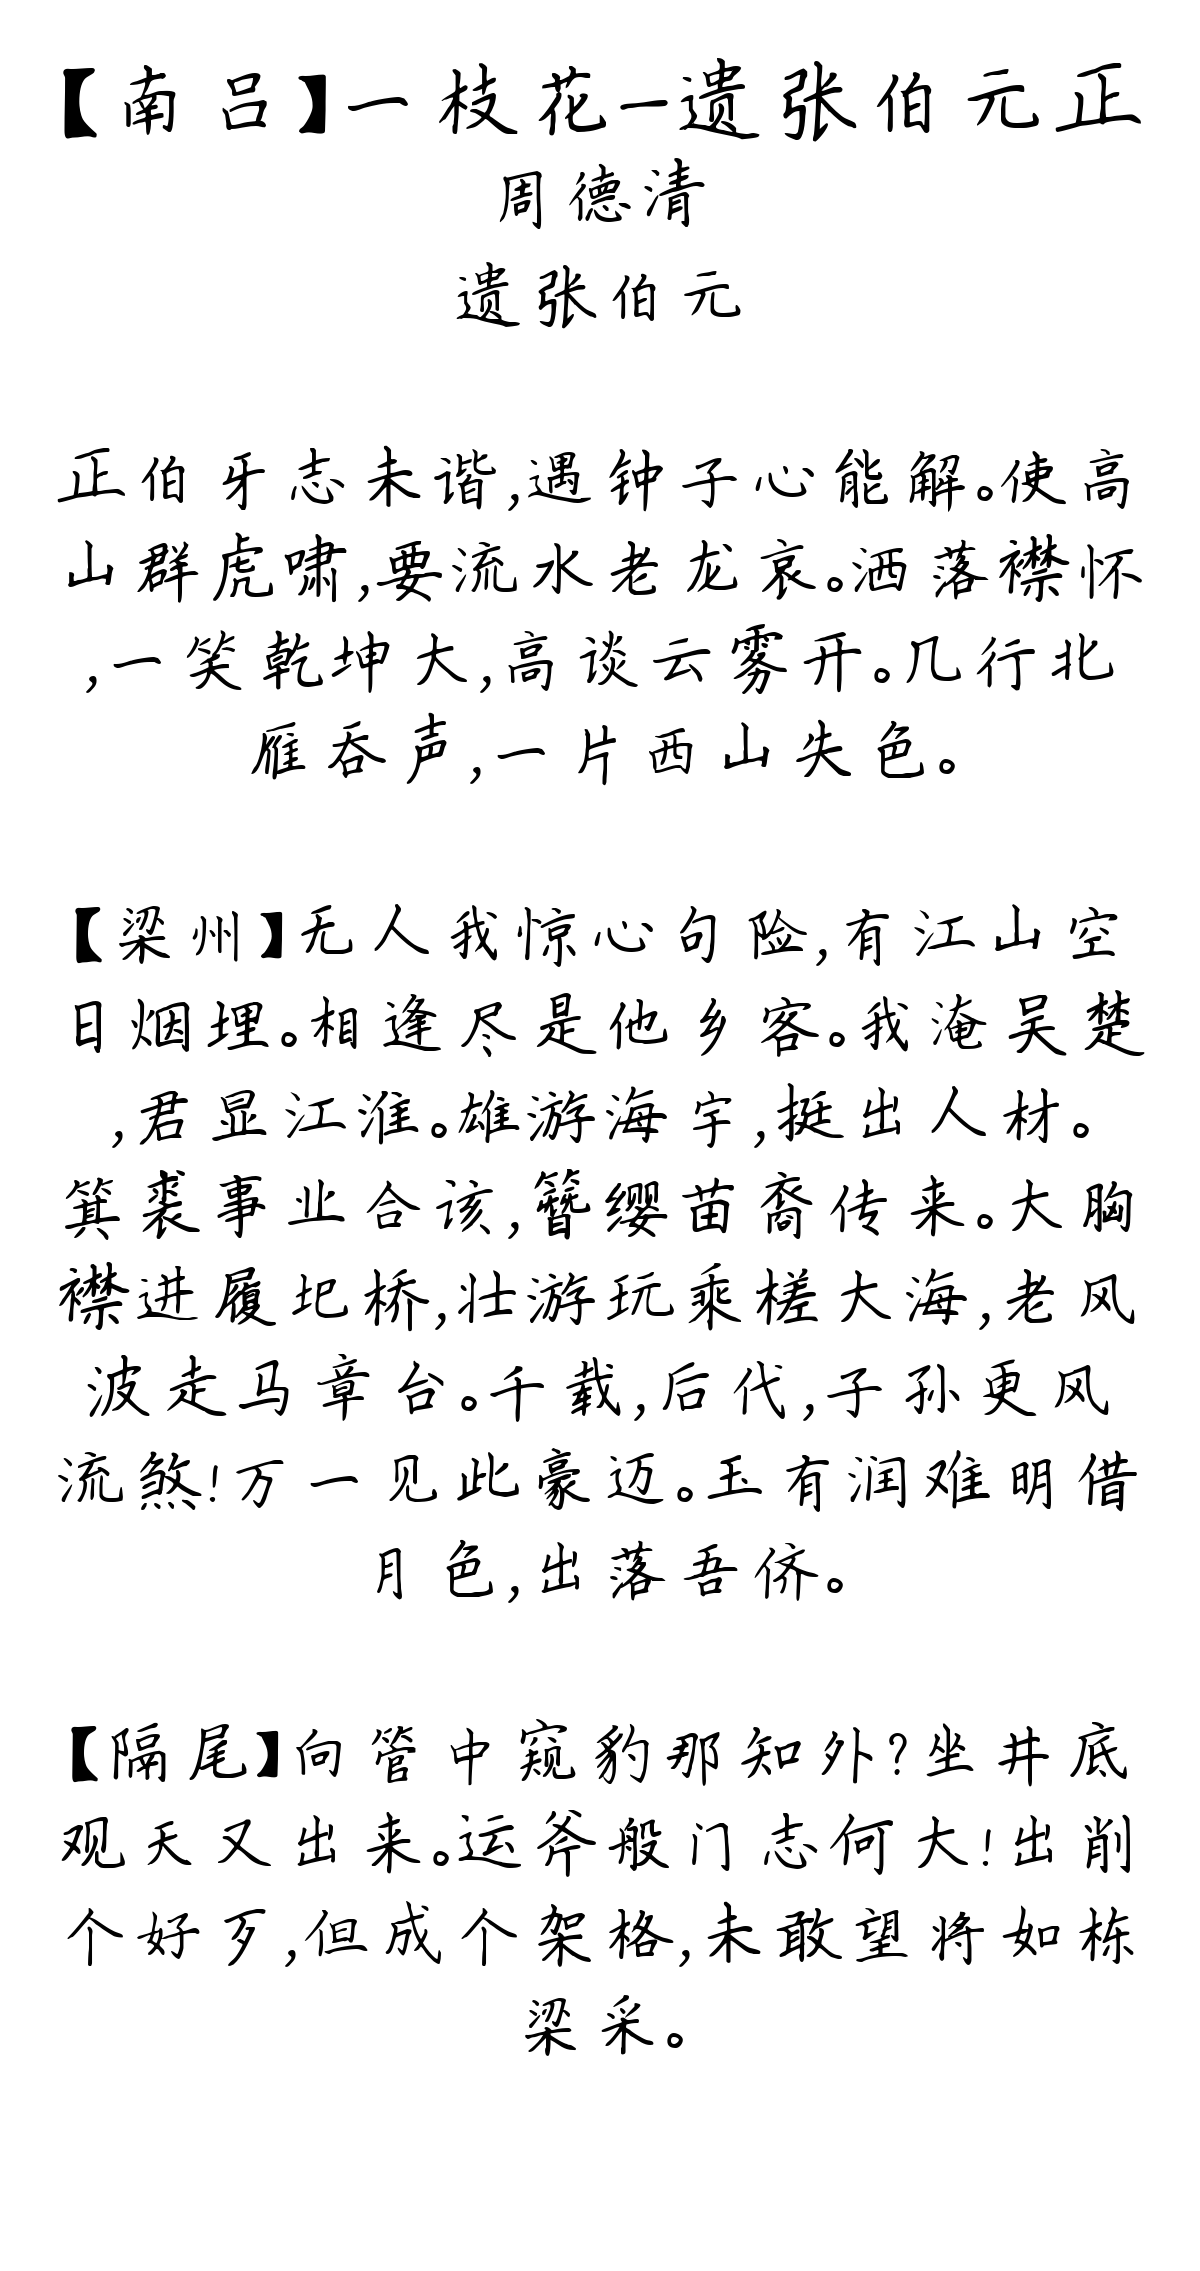 【南吕】一枝花-遗张伯元正
周德清
遗张伯元
正伯牙志未谐,遇钟子心能解。使高
山群虎啸,要流水老龙哀。洒落襟怀
,一笑乾坤大,高谈云雾开。几行北
雁吞声,一片西山失色。
【梁州】无人我惊心句险,有江山空
日烟埋。相逢尽是他乡客。我淹吴楚
,君显江淮。雄游海宇,挺出人材。
箕裘事业合该,簪缨苗裔传来。大胸
襟进履圯桥,壮游玩乘槎大海,老风
波走马章台。千载,后代,子孙更风
流煞!万一见此豪迈。玉有润难明借
月色,出落吾侪。
【隔尾】向管中窥豹那知外?坐井底
观天又出来。运斧般门志何大!出削
个好歹,但成个架格,未敢望将如栋
梁采。